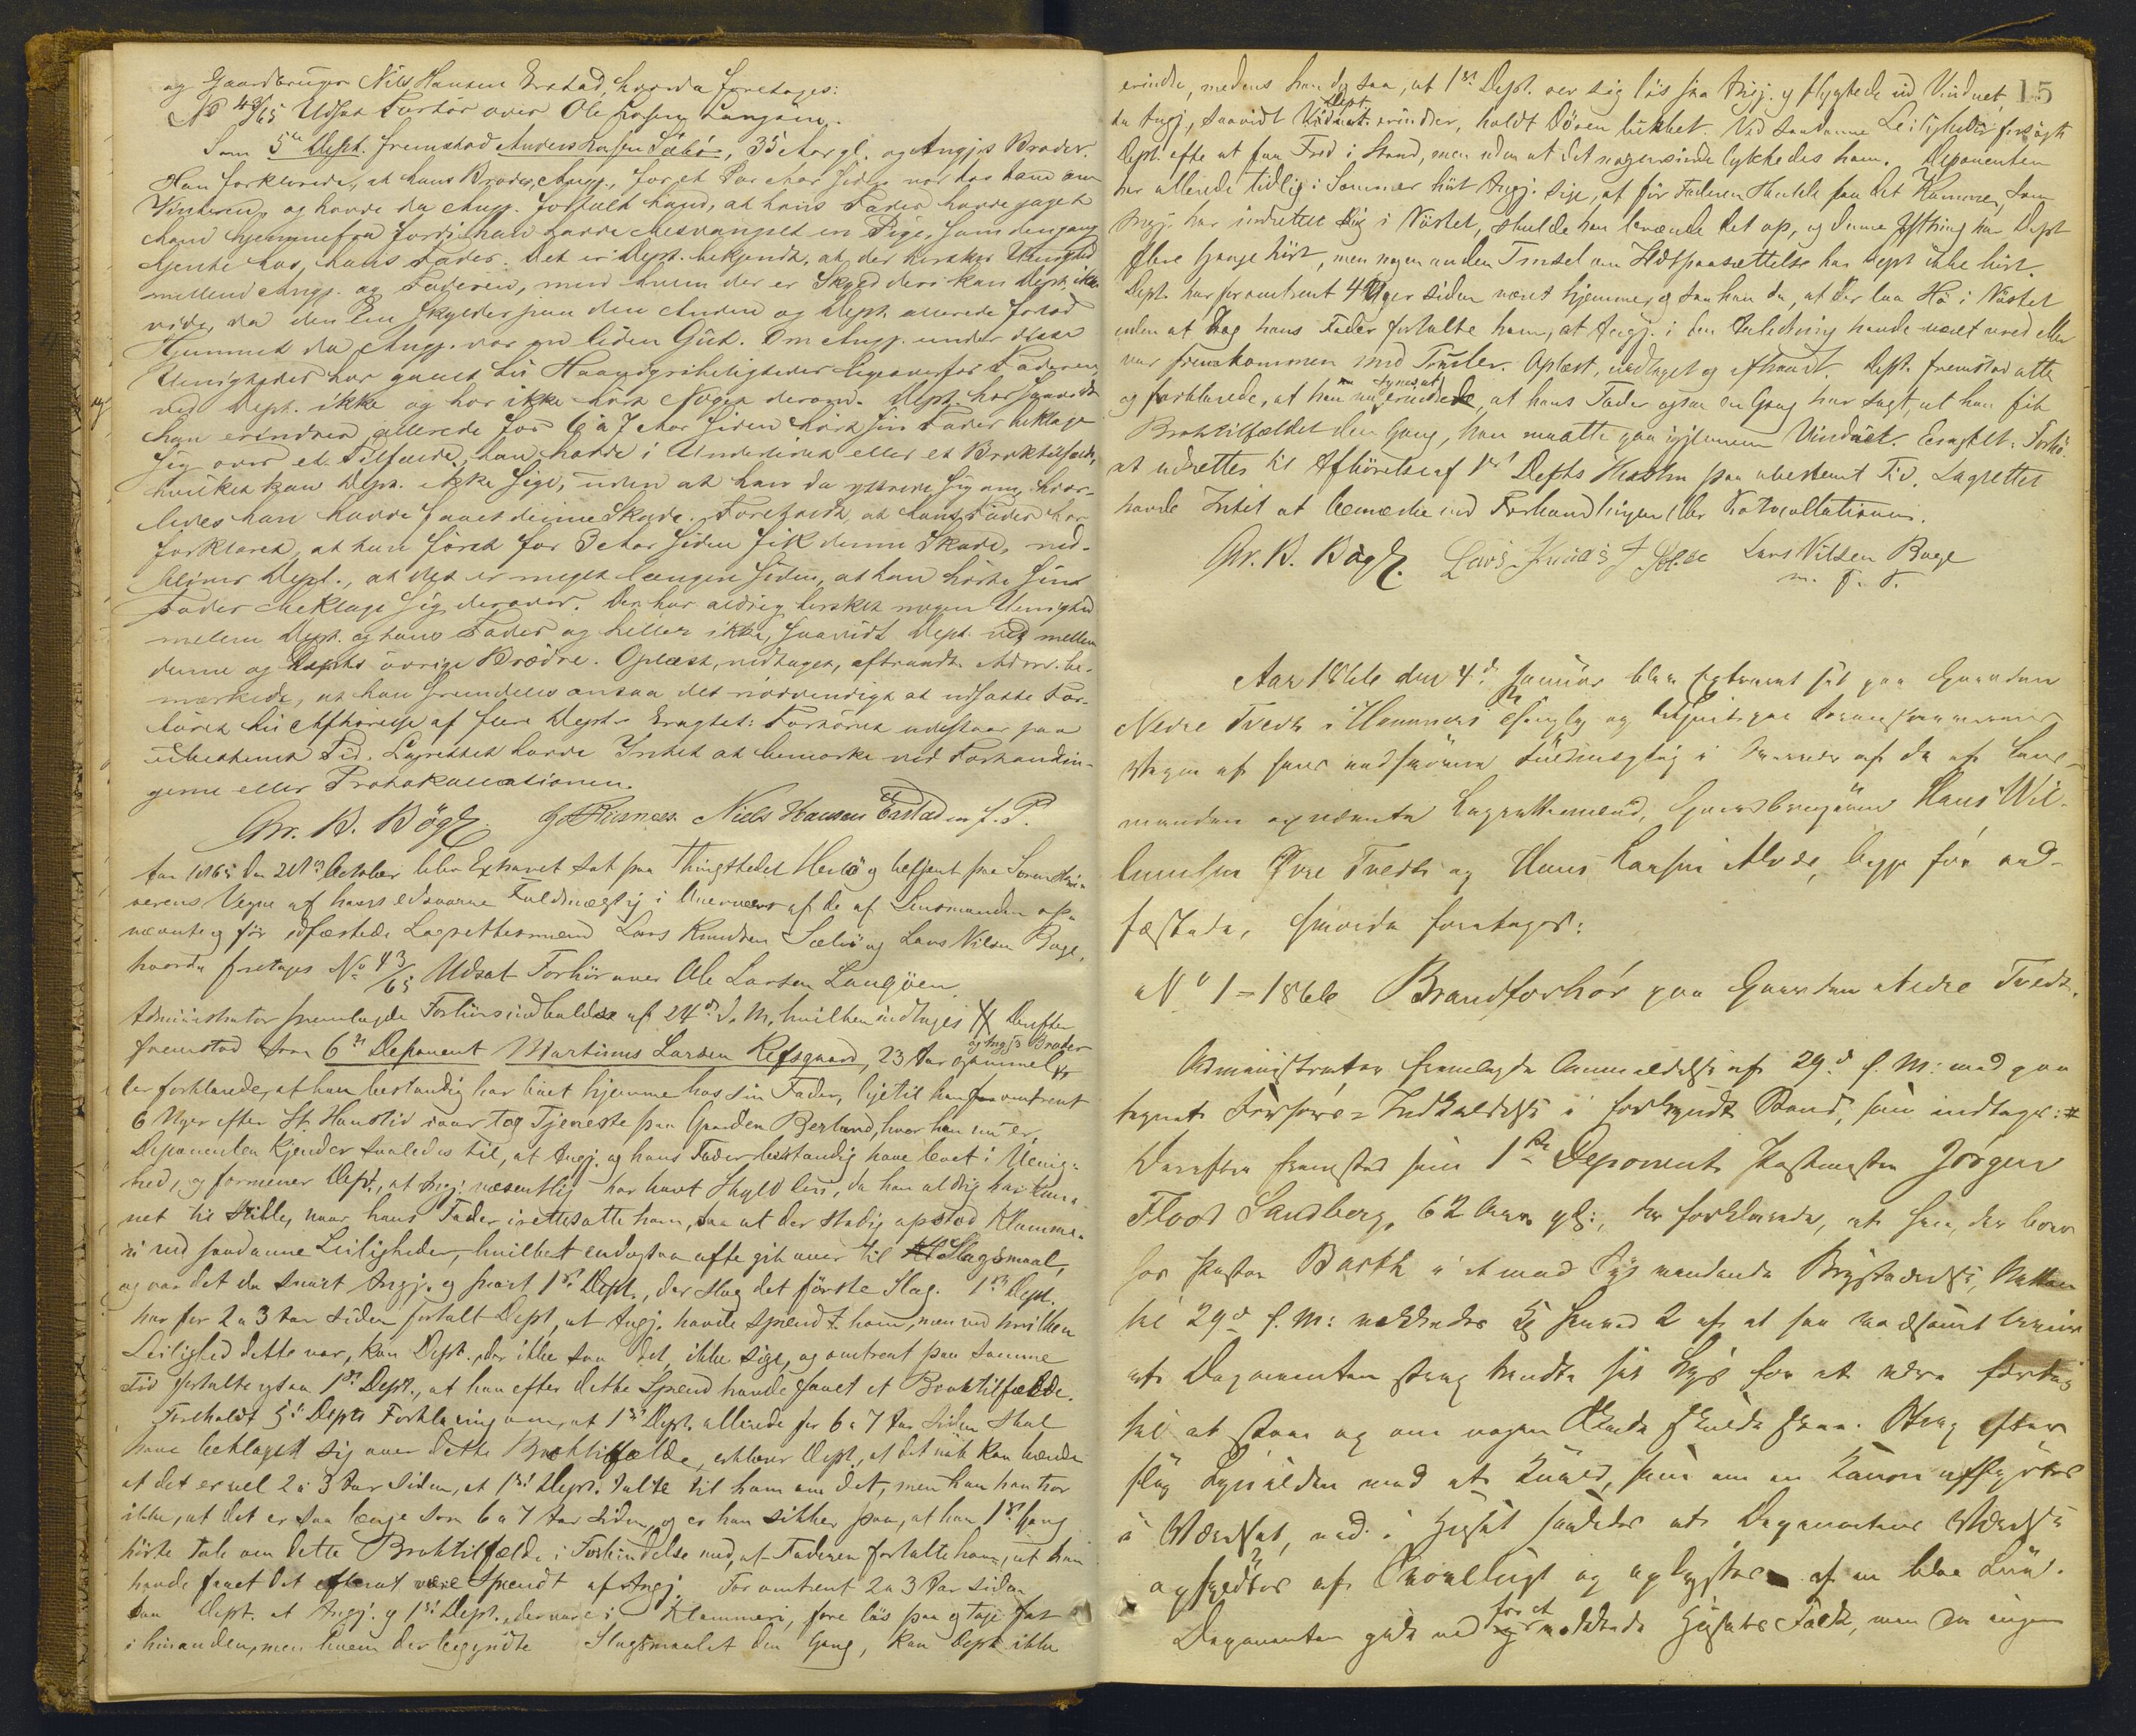 og Gaardbruger Nils Hansen Erstad, hvorda foretages:
No 43/65 Udsat Forhör over Ole Larsen Langöen.
Som 5te Dept. fremstod Anders Larsen Sæbö, 35 Aar gl. og Angjs Broder.
Han forklarede, at hans Broder, Angj., for et Par Aar siden var hos ham om
Vinteren, og havde da Angj. fortalt ham, at hans Fader havde jaget
ham hjemmefra fordi han havde besvangret en Pige, som dengang
tjente hos hans Fader. Det er Dept. bekjendt, at der hersker Uenighed
mellem Angj. og Faderen, men hvem der er Skyld deri kan Dept. ikke
vide, da den Ene skylder paa den Anden og Dept. allerede forlod
Hjemmet da Angj. var en liden Gut. Om Angj. under disse
Uenigheder har gaaet til Haandgribeligheder ligeoverfor Faderen,
ved Dept. ikke og har ikke hört Noget derom. Dept. har saavidt
han erindrer allerede for 6 à 7 Aar siden hört sin Fader beklage
sig over et Tilfælde, han havde i Underlivet eller et Broktilfælde,
hvilket kan Dept. ikke sige, uden at han da yttrede sig om, hvor-
ledes han havde faaet denne Skade. Foreholdt, at hans Fader har
forklaret, at han först for 3 Aar siden fik denne Skade, ved-
bliver Dept., at det er meget længere siden, at han hörte sin
Fader beklage sig derover. Der har aldrig hersket nogen Uenighed
mellem Dept. og hans Fader og heller ikke, saavidt Dept. ved mellem
denne og Depts övrige Brödre. Oplæst, vedtaget, aftraadt. Admr. be-
mærkede, at han fremdeles ansaa det nödvendigt at udsætte For-
höret til Afhörelse af flere Depts. Eragtet: Forhöret udestaar paa
ubestemt Tid. Lagrettet havde Intet at bemærke ved Forhandlin-
gerne eller Protokollationen.
Gr. K. Bögh. Niels Hansen Erstad m. f. P.
Aar 1865 den 28de October blev Extraret sat paa Thingstedet Herlö og betjent paa Sorenskri-
verens Vegne af hans edsvorne Fuldmægtig i Overvær af de af Lensmanden op-
nævnte og för edfæstede Lagrettesmænd Lars Knudsen Sæbö og Lars Nilsen Bage,
hvorda foretages No 43/65 Udsat Forhör over Ole Larsen Langöen.
Administrator fremlagde Forhörsindkaldelse af 24de d. M., hvilken indtages # Derefter
fremstod som 6te Deponent Martinus Larsen Refsgaard, 23 Aar gammel
og Angjs Broder
der forklarede, at han bestandig har været hjemme hos sin Fader, ligetil han omtrent
6 Uger efter St. Hanstid iaar tog Tjeneste paa Gaarden Berland, hvor han nu er.
Deponenten kjender saaledes til, at Angj. og hans Fader bestandig have levet i Uenig-
hed, og formener Dept., at Angj. væsentlig har havt Skyld heri, da han aldrig har kun-
net tie stille, naar hans Fader irettesatte ham, saa at der stadig opstod Klamme-
ri ved saadanne Leiligheder, hvilket endogsaa ofte gik over til Slagsmaal,
og var det da snart Angj. og snart 1ste Dept., der slog det förste Slag. 1ste Dept.
har for 2 a 3 Aar siden fortalt Dept., at Angj. havde spændt ham, men ved hvilken
Leilighed dette var, kan Dept., der ikke saa det, ikke sige, og omtrent paa samme
Tid fortalte ogsaa 1ste Dept., at han efter dette Spænd havde faaet et Broktilfælde.
Foreholdt 5te Depts Forklaring om, at 1ste Dept. allerede for 6 a 7 Aar siden skal
have beklaget sig over dette Broktilfælde, erklærer Dept., at det nok kan hænde
at det er vel 2 a 3 Aar siden, at 1ste Dept. talte til ham om det, men han tror
ikke, at det er saa længe som 6 a 7 Aar siden, og er han sikker paa, at han 1ste Gang
hörte Tale om dette Broktilfælde i Forbindelse med, at Faderen fortalte ham, at han
havde faaet det efterat være spændt af Angj. For omtrent 2 a 3 Aar siden
saa Dept. at Angj. og 1ste Dept., der vare i Klammeri, fore lös paa og toge fat
i hinanden, men hvem der begyndte Slagsmaalet den Gang, kan Dept. ikke
15
erindre, medens han dog saa, at 1ste Dept. rev sig lös fra Angj. og flygtede ud Vinduet,
da Angj., saavidt Dept. erindrer, holdt Dören lukket. Ved saadanne Leiligheder forsögte
Dept. ofte at faa Fred i Stand, men uden at det nogensinde lykkedes ham. Deponenten
har allerede tidlig i Sommer hört Angj. sige, at för Faderen skulde faa det Kammer, som
Angj. har indrettet sig i Nöstet, skulde han brænde det op, og denne Yttring har Dept.
flere Gange hört, men nogen anden Trudsel om Ildspaasættelse har Dept. ikke hört.
Dept. har for omtrent 4 Uger siden været hjemme og saa han da, at der laa Hö i Nöstet
uden at dog hans Fader fortalte ham, at Angj. i den Anledning havde været vred eller
var fremkommen med Trusler. Oplæst, vedtaget og aftraadt. Dept. fremstod atter
og forklarede, at han nu synes at erindre, at hans Fader ogsaa en Gang har sagt, at han fik
Broktilfældet den Gang, han maatte gaa igjennem Vinduet. Eragtet: Forhö-
at udsættes til Afhörelse af 1ste Depts Hustru paa ubestemt Tid. Lagrettet
havde Intet at bemærke ved Forhandlingen eller Protocollationen.
Gr. K. Bögh. Lars Nilsen Bage
m. f. P.
Aar 1866 den 4de Januar blev Extraret sat paa Gaarden
Nedre Tvedt i Hammers Thinglag og betjent paa Sorenskriverens
Vegne af hans edsvorne Fuldmægtig i Overvær af de af Lens-
manden opnævnte Lagrettesmænd, Gaardbrugerne Hans Wil-
lumsen Øvre Tvedt og Hans Larsen Alvær, begge för ed-
fæstede, hvorda foretages:
No 1 = 1866 Brandforhör paa Gaarden Nedre Tvedt.
Administrator fremlagde Anmeldelse af 29de f. M: med paa
tegnet Forhörs-Indkaldelse i forkyndt Stand, som indtages: #
Derefter fremstod som 1ste Deponent Postmester Jörgen
Flood Sandberg, 62 Aar gl:, der forklarede, at han, der boer
hos Pastor Barth i et mod Syd vendende Værelse, Natten
til 29de f. M: vækkedes Kl henved 2 af et saa voldsomt Uveir
at Deponenten strax tændte sit Lys for at være færdig
til at staa op om nogen Skade skulde skee. Strax efter
slog Lynilden ned et Knald, som om en Kanon affyredes
i Værelset, ned i Huset saaledes at Deponentens Værelse
opfyldtes af Svovellugt og oplystes af en blaa Lue.
Deponenten gik ned for at vække Husets Folk, men da ingen